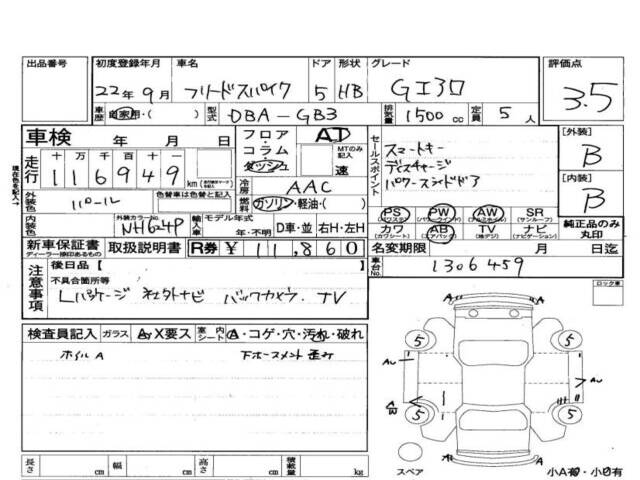 出品番号 初度登録年月 車名 ドア 形状 グレード 評価点
22年9月 フリードスパイク 5 HB GI30 3.5
車歴 自家用・( ) 型式 DBA-GB3 排気量 1500cc 定員 5人
車検 年 月 日 フロア・コラム・ダッシュ AT MTのみ記入 速
セールスポイント スマートキー
ディスチャージ
パワースライドドア
[外装] B
[内装] B
走行 十万千百十一 116949km
冷房 AAC
外装色 パール 色替車は色替え前 燃料 ガソリン・軽油・( )
内装色 外装カラーNo. NH624P 輸入車 モデル年式 年・不明 D車・並 右H・左H
PS (パワステ) PW (パワーウィンド) AW (アルミホイル) SR (サンルーフ)
カワ (カワシート) AB (エアバック) TV (地デジ) ナビ (ナビゲーション)
純正品のみ丸印
新車保証書 ディーラー捺印あるもの 取扱説明書 R券 ¥11,860
名変期限 月 日迄
注意事項 後日品 [
不具合箇所等
Lパッケージ ナビ バックカメラ. TV
車台No. 1306459
ロック車
検査員記入 ガラス A y X要ス 室内シート A・コゲ・穴・汚れ・破れ
ホイルA 下ホースメント歪み
A A
5 5
AU AU
A
W
5 5
A A
スペア
小A有・小U有
長さ cm 幅 cm 高さ cm 積載量 kg
現在色を記入